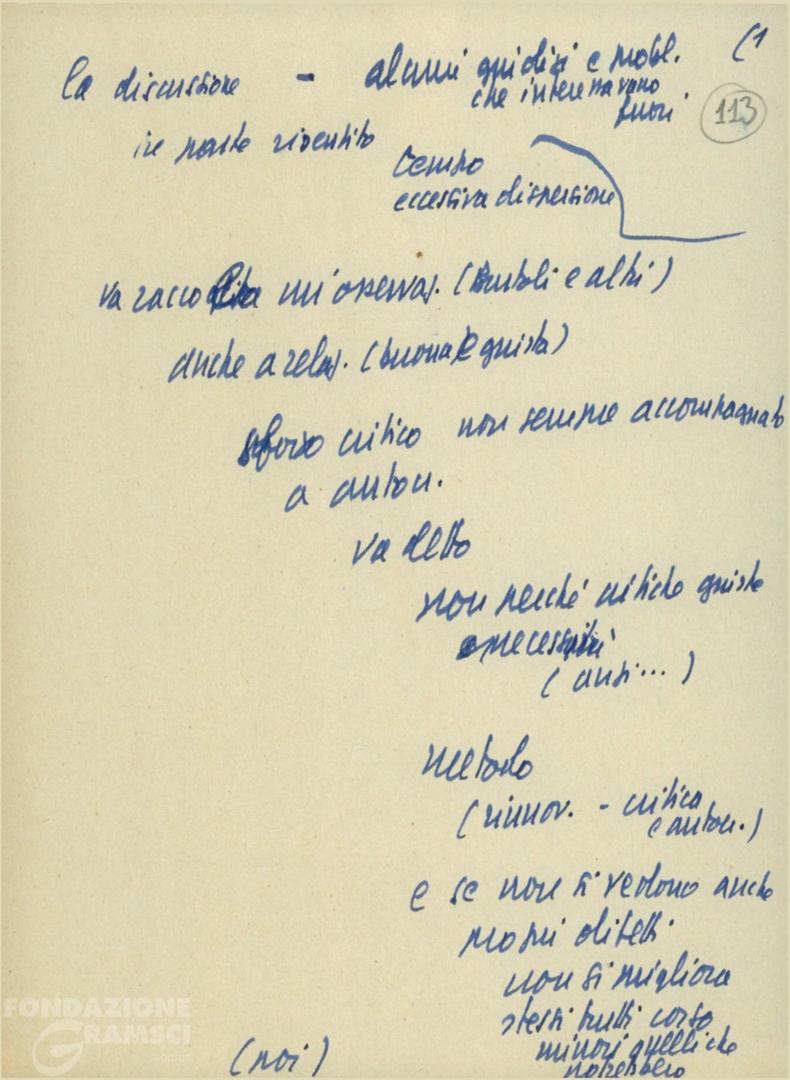 (1
la discussione - alcuni giudizi e probl.
che interessavano
fuori.
113
in parte risentito
tempo
eccessiva dispersione
va raccolta un'osservaz. (Bartoli e altri)
anche a relaz. (buona e giusta)
sforzo critico non sempre accompagnato
a autocr.
va detto
non perché critiche giuste
o necessità
(anzi...)
metodo
(rinnov. - critica
e autocr.)
e se non si vedono anche
propri difetti
non si migliora
stessi frutti corso
minori quelli che
potrebbero
(noi)
FONDAZIONE
GRAMSCI